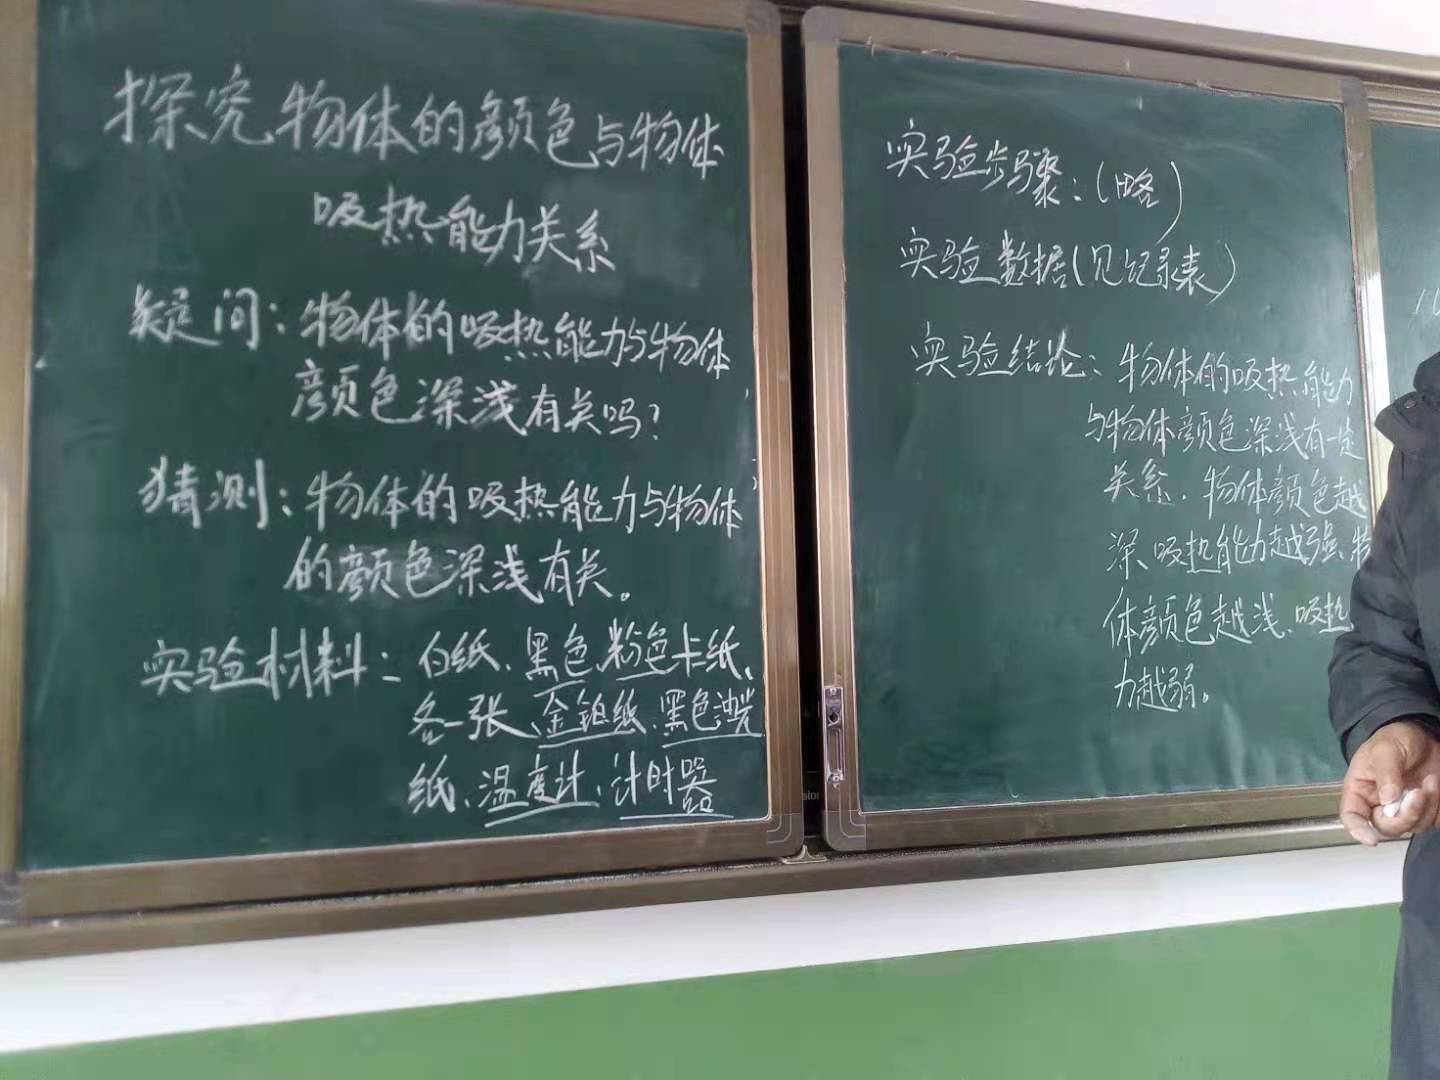 探究物体的颜色与物体
吸热能力关系
疑问：物体的吸热能力与物体
颜色深浅有关吗？
猜测：物体的吸热能力与物体
的颜色深浅有关。
实验材料：白纸、黑色、粉色卡纸、
各一张、金铂纸、黑色油光
纸、温度计、计时器
实验步骤：（略）
实验数据（见记录表）
实验结论：物体的吸热能力
与物体颜色深浅有一定
关系．物体颜色越
深、吸热能力越强、物
体颜色越浅、吸热
力越弱。